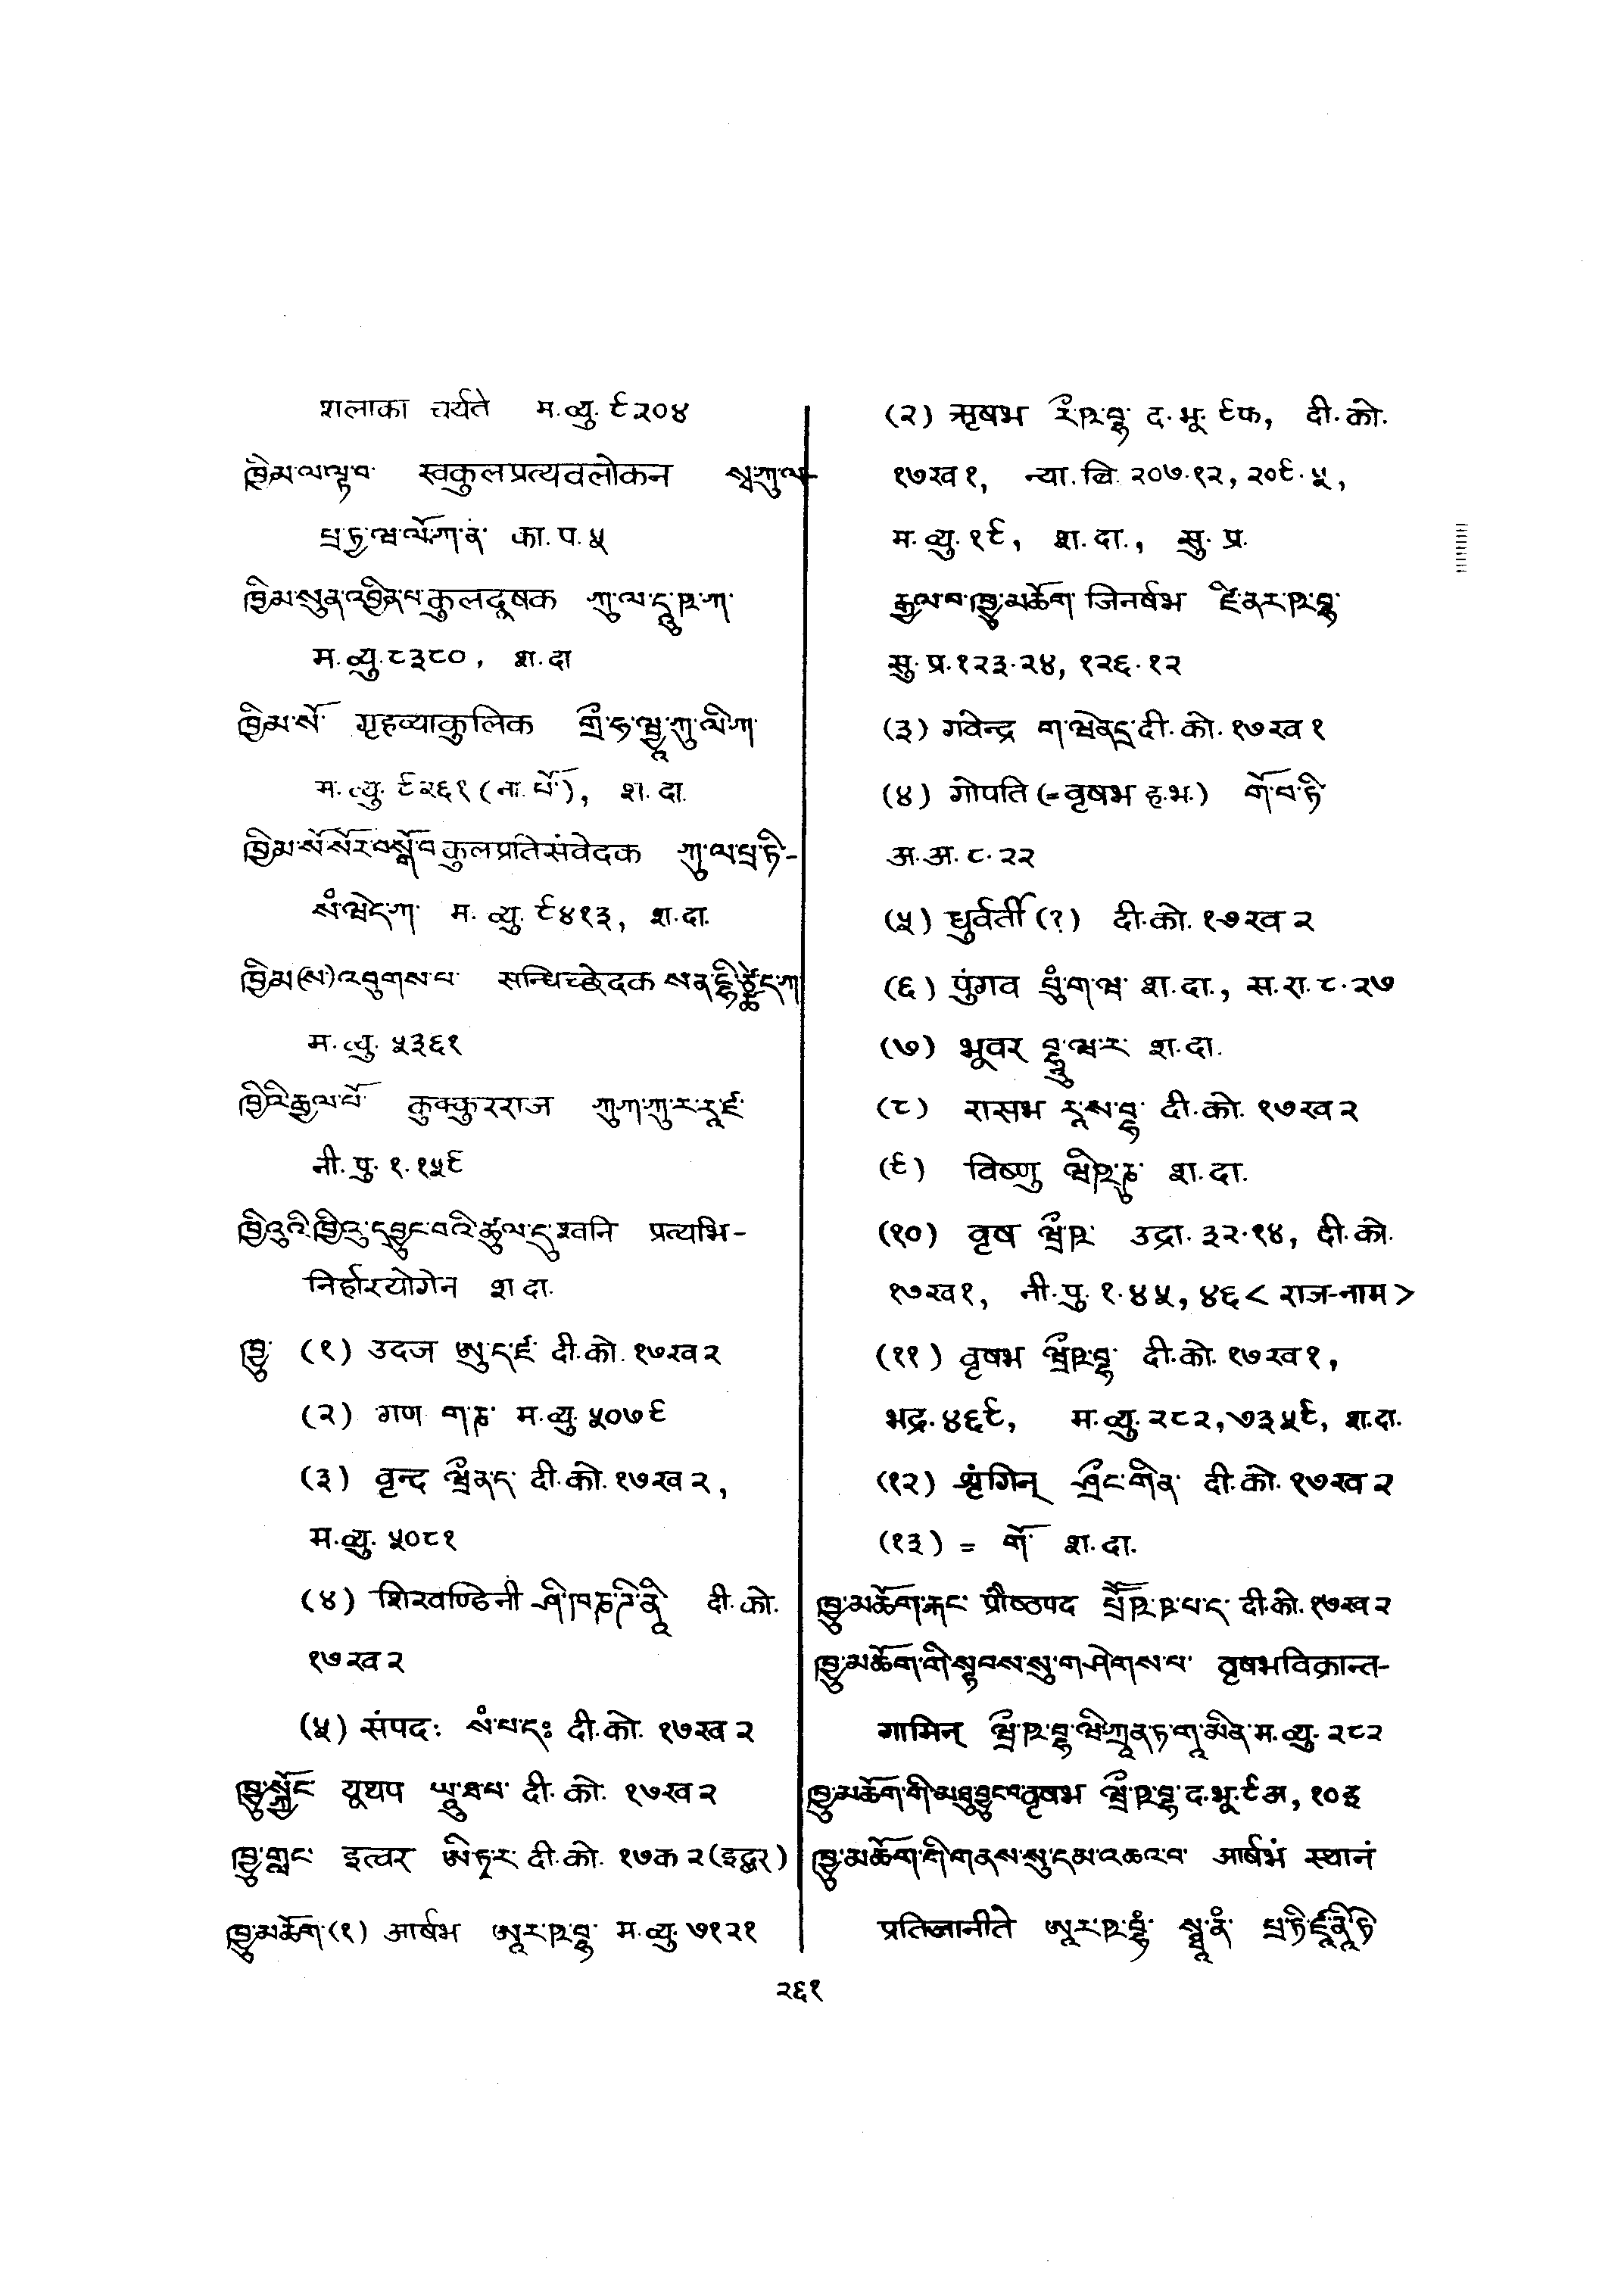 शलाका चर्यते म.व्यु. ९२०४
ཁྱིམ་ལ་ལྟ་བ་ स्वकुलप्रत्यवलोकन སྭ་ཀུ་ལ-
པྲ་ཏྱ་ཝ་ལོ་ཀ་ན་ का.प.५
ཁྱིམ་སུན་འབྱིན་པ་ कुलदूषक ཀུ་ལ་དཱུ་ཥ་ཀ་
म.व्यु.८३८०, श.दा
ཁྱིམ་སོ་ गृहव्याकुलिक གྲྀ་ཧ་ཝྱཱ་ཀུ་ལི་ཀ་
म.व्यु. ९२६१(ना.པོ་), श.दा.
ཁྱིམ་སོ་སོར་བསྒོ་བ་ कुलप्रतिसंवेदक ཀུ་ལ་པྲ་ཏི-
སཾ་ཝེ་ད་ཀ་ म. व्यु. ९४१३, श.दा.
ཁྱིམ(ས)་འབུགས་པ་ सन्धिच्छेदक སནྡྷི་ཙྪེ་ད་ཀ
म.व्यु. ५३६१
ཁྱིའི་རྒྱལ་པོ་ कुक्कुरराज ཀུ་ཀ་ཀུ་ར་རཱ་ཛ་
नी. पु. १.१५९
ཁྱིའུའི་ཁྱིའུ་དབྱུང་བའི་ཚུལ་དུ་ श्वनि प्रत्यभि-
निर्हारयोगेन श दा.
ཁྱུ་ (१) उदज ཨུ་ད་ཛ་ दी.को. १७ख२
(२) गण ག་ཎ་ म.व्यु. ५०७९
(३) वृन्द ཝྲྀན་ད་ दी.को.१७ख२,
म.व्यु. ५०८१
(४) शिखण्डिनी ཤི་ཁ་ཎ་ཌི་ནཱི་ दी.को.
१७ख२
(५) संपदः སཾ་པ་དཿ दी.को. १७ख२
ཁྱུ་སྐྱོང་ यूथप ཡཱུ་ཐ་པ་ दी.को. १७ख२
ཁྱུ་གླང་ इत्वर ཨི་ཏྭ་ར་ दी.को. १७क२(इद्वर)
ཁྱུ་མཆོག་(१) आर्षभ ཨཱ་ར་ཥ་བྷ་ म.व्यु. ७१२१
(२) ऋषभ རྀ་ཥ་བྷ་ द.भू. ९फ, दी.को.
१७ख१, न्या.वि. २०७.१२, २०९.५,
म.व्यु. १९, श.दा., सु.प्र.
རྒྱལ་བ་ཁྱུ་མཆོག་ जिनर्षभ ཛི་ན་ར་ཥ་བྷ་
सु.प्र.१२३.२४, १२६.१२
(३) गवेन्द्र ག་ཝེནྡྲ་ दी.को. १७ख१
(४) गोपति (=वृषभ ह.भ.) གོ་པ་ཏི་
अ.अ. ८.२२
(५) धुर्वर्ती(?) दी.को. १७ख२
(६) पुंगव པུཾ་ག་ཝ་ श.दा., स.रा. ८.२७
(७) भूवर བྷཱུ་ཝ་ར་ श.दा.
(८) रासभ རཱ་ས་བྷ་ दी.को. १७ख२
(९) विष्णु ཝི་ཥ་ཎུ་ श.दा.
(१०) वृष ཝྲྀ་ཥ་ उद्रा. ३२.१४, दी.को.
१७ख१, नी.पु. १.४५,४६< राज-नाम >
(११) वृषभ ཝྲྀ་ཥ་བྷ་ दी.को. १७ख१,
भद्र.४६९, म.व्यु.२८२,७३५९, श.दा.
(१२) शृंगिन् ཤྲྀང་གིན་ दी.को. १७ख२
(१३) = གོ་ श.दा.
ཁྱུ་མཆོག་རྐང་ प्रौष्ठपद པྲོ་ཥ་ཋ་པ་ད་ दी.को.१७ख२
ཁྱུ་མཆོག་གི་སྟབས་སུ་གཤེགས་པ་ वृषभविक्रान्त-
गामिन् ཝྲྀ་ཥ་བྷ་ཝི་ཀྲཱན་ཏ་གཱ་མིན་ म.व्यु. २८२
ཁྱུ་མཆོག་གི་མཐུ་བྱུང་བ་ वृषभ ཝྲྀ་ཥ་བྷ་ द.भू.९अ, १०ङ
ཁྱུ་མཆོག་གི་གནས་སུ་དམ་འཆའ་བ་ आर्षभं स्थानं
प्रतिजानीते ཨཱ་ར་ཥ་བྷཾ་ སྠཱ་ནཾ་ པྲ་ཏི་ཛཱ་ནཱི་ཏེ
२६१